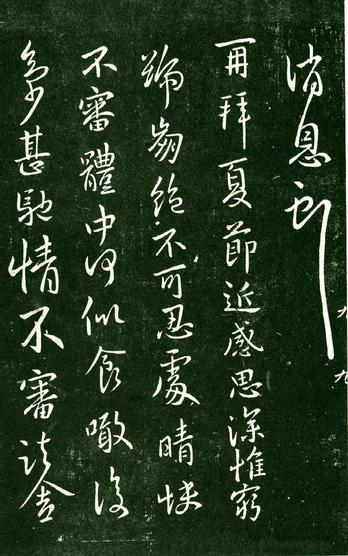 消息
再拜夏節近感思深惟窮
號崩絕不可忍處晴快
不審體中何似食噉復
多少甚馳情不審諸舍